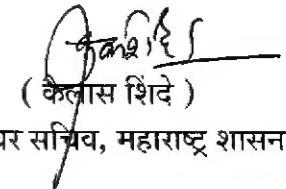 ( कैलास शिंदे )
सचिव, महाराष्ट्र शासन